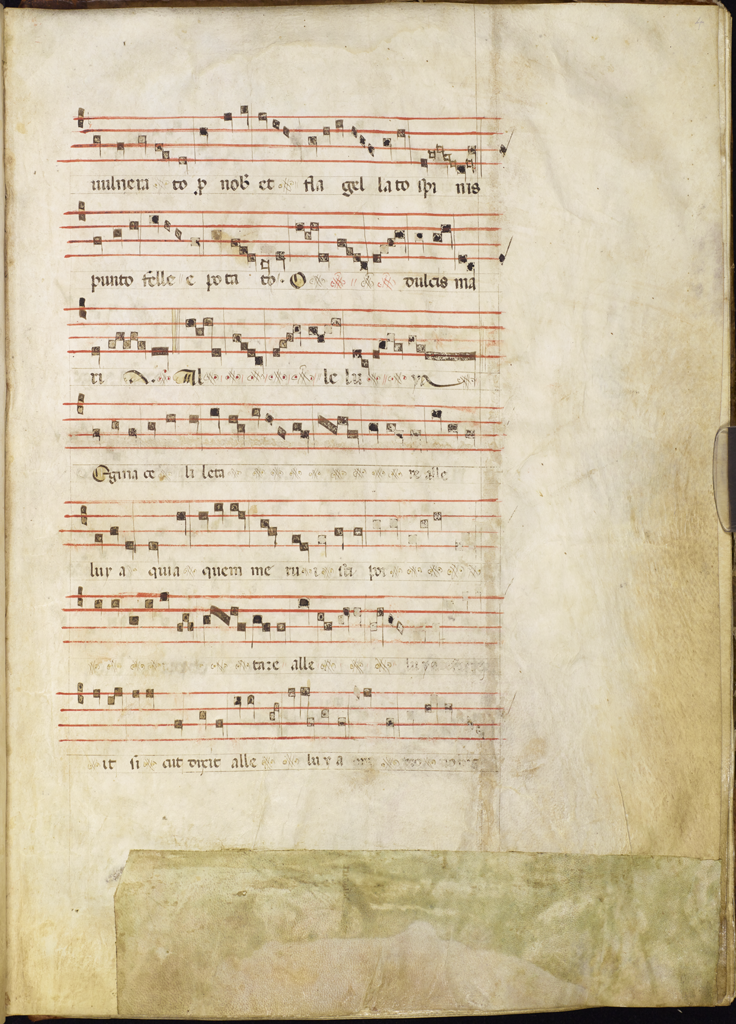 uulnera to p nob et fla gel lato spi nis
punto felle e pota to. O dulcis ma
ri All le lu ya
Egina ce li leta re alle
luya quia quem me ru i sti por
tare alle luya
it si cut dixit alle luya